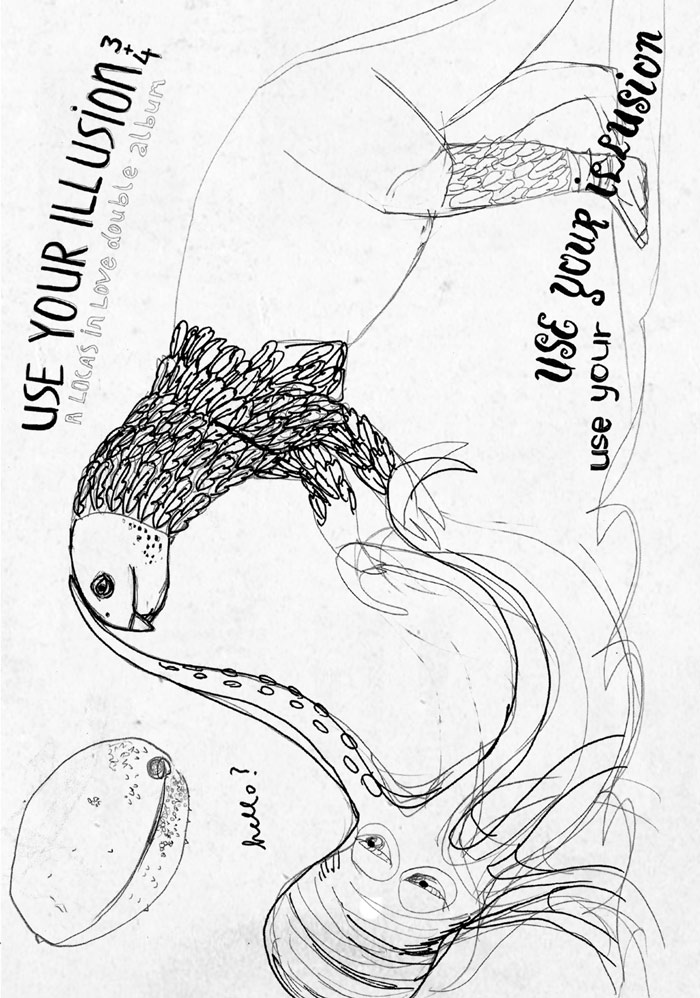 USE YOUR ILLUSION 3+4
A LOCAS IN LOVE double album
USE YOUR ILLUSION
use your
hello?